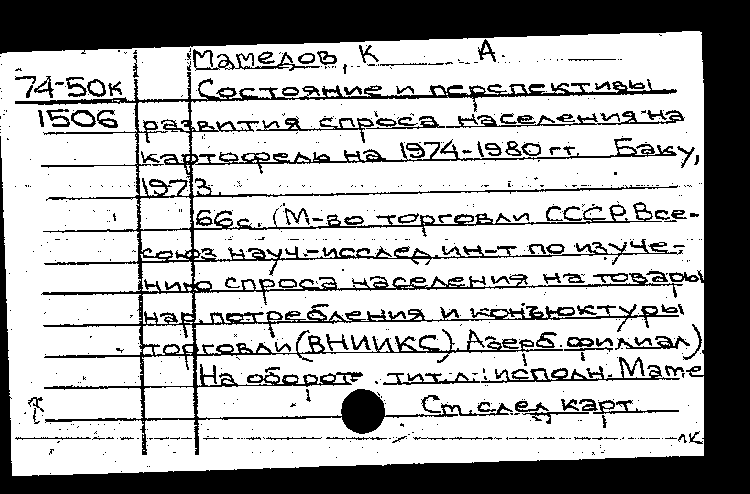 Мамедов, К А.
74-50к Состояние и перспективы
1506 развития спроса населения на
картофель на 1974-1980 гг. Баку,
1973.
66с. (М-во торговли СССР. Все-
союз науч.-исслед. ин-т по изуче-
нию спроса населения на товары
нар. потребления и конъюктуры
торговли (ВНИИКС). Азерб. филиал).
На обороте тит. л.: исполн. Маме
Ст. след карт.